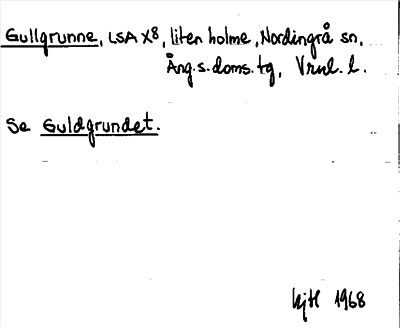 Gullgrunne, LSA X8, liten holme, Nordingrå sn,
Äng.s.doms.tg, Vrnl. l.
Se Guldgrundet.
kjtl 1968